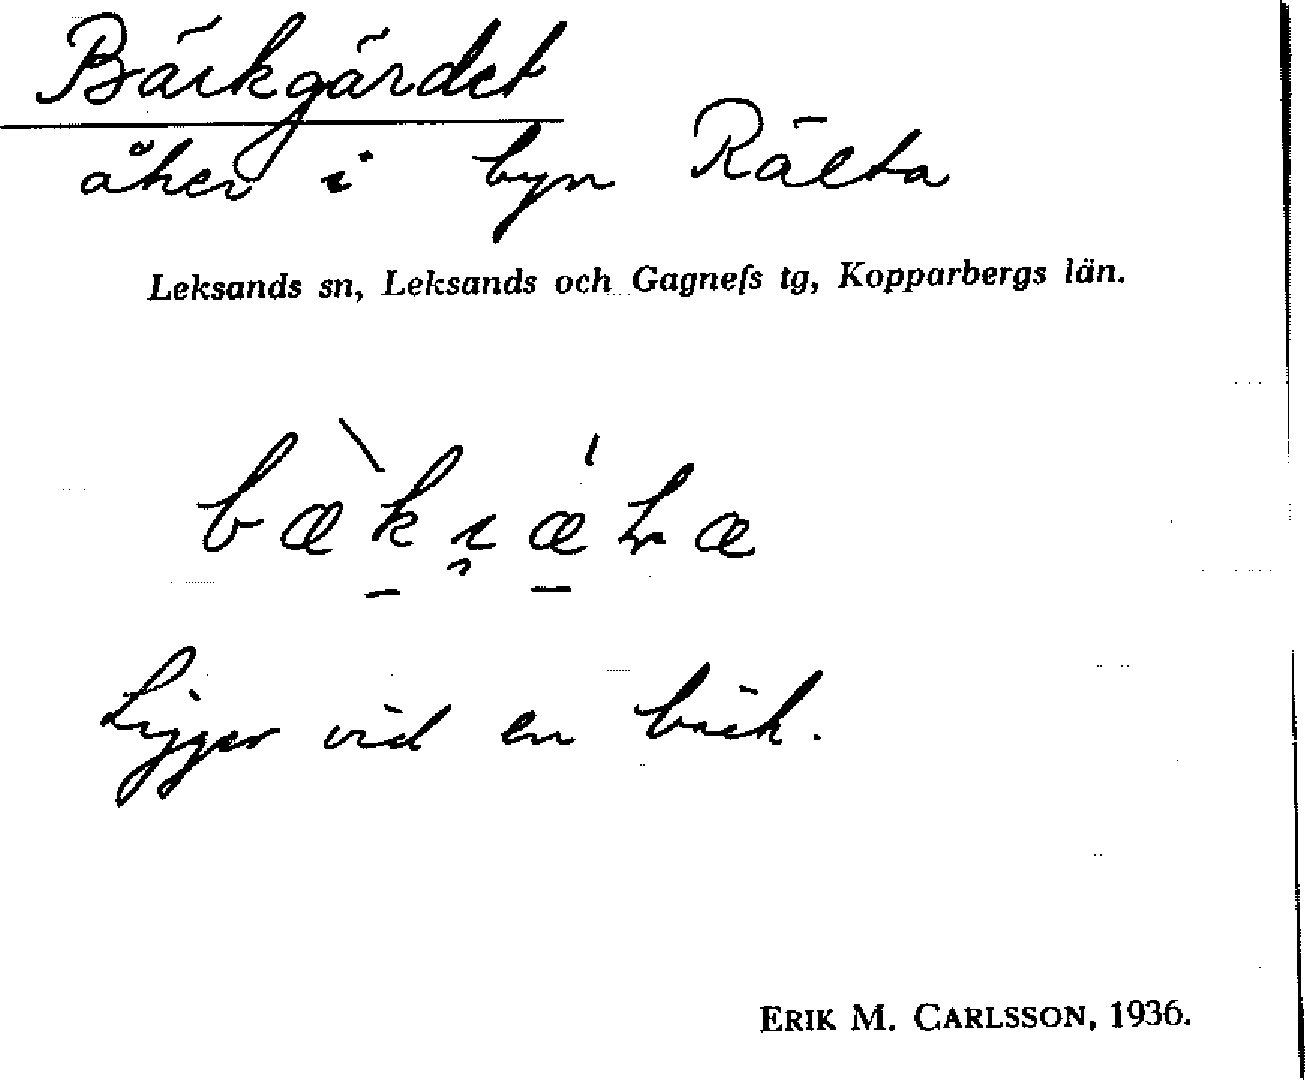 Bäckgärdet
åker i byn Rälta
Leksands sn, Leksands och Gagnefs tg, Kopparbergs län.
Ligger vid en bäck.
ERIK M. CARLSSON, 1936.